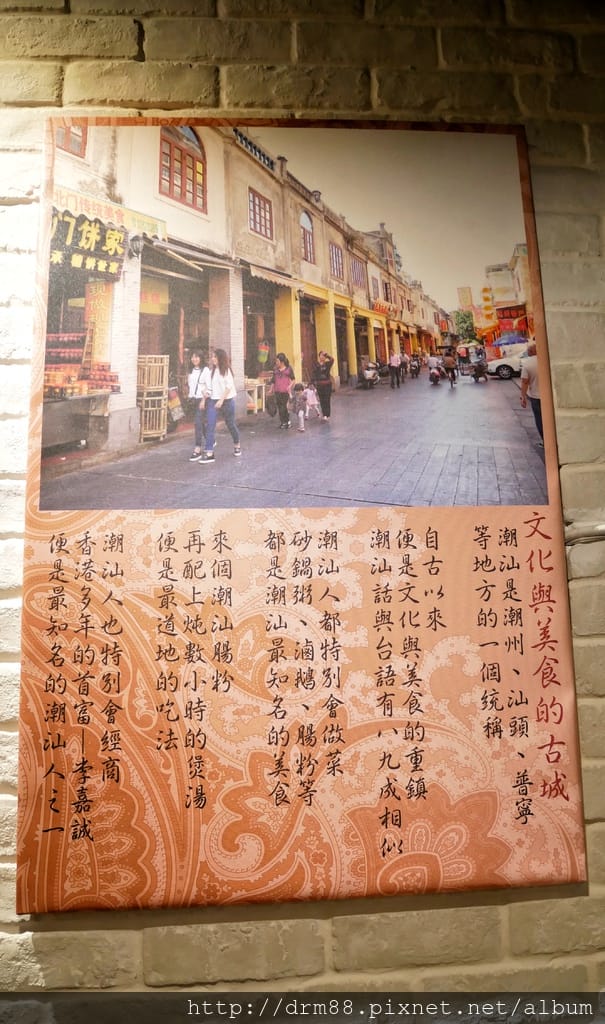 文化與美食的古城
潮汕是潮州、汕頭、普寧
等地方的一個統稱
自古以來
便是文化與美食的重鎮
潮汕話與台語有八九成相似
潮汕人都特別會做菜
砂鍋粥、滷鵝、腸粉等
都是潮汕最知名的美食
來個潮汕腸粉
再配上炖數小時的煲湯
便是最道地的吃法
潮汕人也特別會經商
香港多年的首富—李嘉誠
便是最知名的潮汕人之一
北门传统美食
门饼家
http://drm88.pixnet.net/album